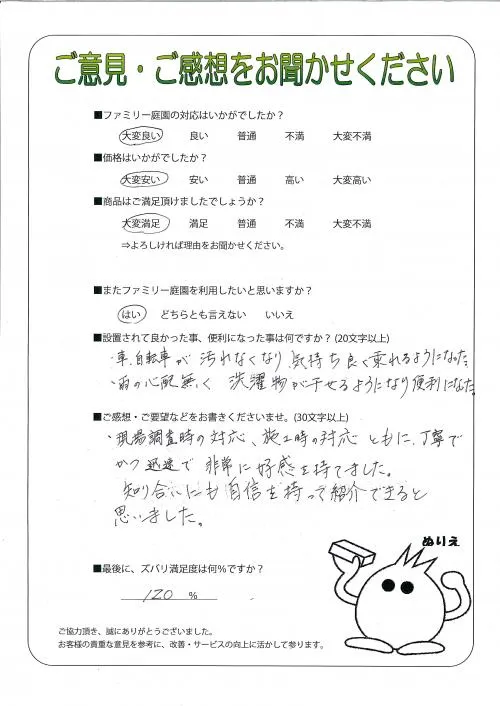 ご意見・ご感想をお聞かせください
■ファミリー庭園の対応はいかがでしたか？
大変良い 良い 普通 不満 大変不満
■価格はいかがでしたか？
大変安い 安い 普通 高い 大変高い
■商品はご満足頂けましたでしょうか？
大変満足 満足 普通 不満 大変不満
⇒よろしければ理由をお聞かせください。
■またファミリー庭園を利用したいと思いますか？
はい どちらとも言えない いいえ
■設置されて良かった事、便利になった事は何ですか？(20文字以上)
・車、自転車が汚れなくなり気持ち良く乗れるようになった。
・雨の心配無く洗濯物が干せるようになり便利になった。
■ご感想・ご要望などをお書きくださいませ。(30文字以上)
・現場調査時の対応、施工時の対応ともに、丁寧で
かつ迅速で非常に好感を持てました。
知り合いにも自信を持って紹介できると
思いました。
ぬりえ
■最後に、ズバリ満足度は何％ですか？
120 %
ご協力頂き、誠にありがとうございました。
お客様の貴重な意見を参考に、改善・サービスの向上に活かして参ります。